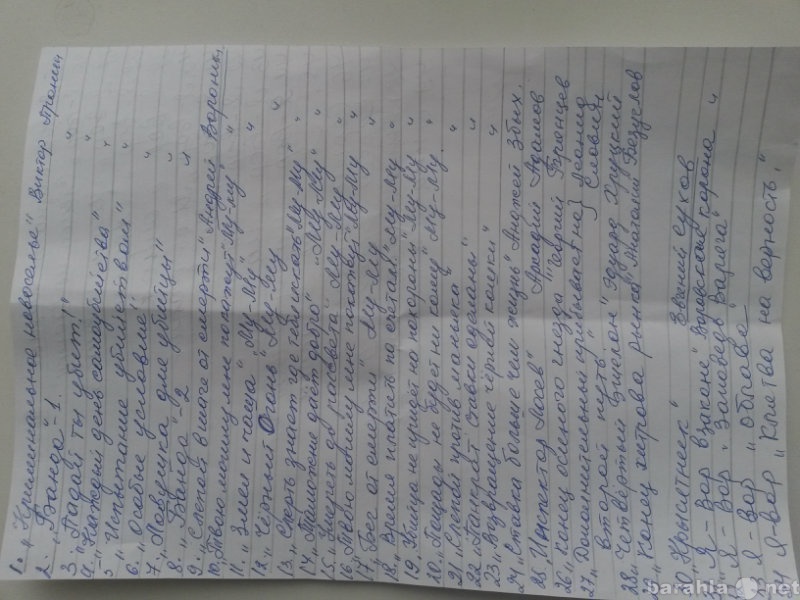 1. „Криминальное новоселье" Виктор Пронин
2. „Банда"-1.
3. „Падай ты убит!" "
4. „Каждый день самоубийство" "
5. „Испытание убийством" "
6. „Особые условия" "
7. „Ловушка для убийцы" "
8. „Банда"-2 "
9. „Слепой в шаге от смерти" Андрей Воронин
10. „Твою машину мне покажут" „Му-Му" "
11. „Змея и чаша" „Му-Му" "
12. „Чёрный Огонь" „Му-Му "
13. „Смерть знает где тебя искать" „Му-Му" "
14. „Таможня даёт добро" „Му-Му" "
15. „Умереть до рассвета" „Му-Му "
16. Твою машину мне покажут" „Му-Му "
17. „Бег от смерти" „Му-Му "
18. „Время платить по счетам" „Му-Му "
19 „Убийца не придёт на похороны" „Му-Му "
20. „Пощады не будет никому" „Му-Му. "
21. „Слепой против маньяка" "
22. „Панкрат. Ставки сделаны" "
23. „Возвращение чёрной кошки" "
24 „Ставка больше чем жизнь" Анджей Збых.
25. „Инспектор Лосев" Аркадий Адамов
26 „Конец осиного гнезда" Георгий Брянцев
27. „Дополнительный прибывает на Леонид
второй путь" Словин
28. „Четвёртый Эшелон" Эдуард Хруцкий
„Конец хитрова рынка" Анатолий Безуглов
30 „Крысятник" Евгений Сухов
„Я - Вор в законе" Воровская корона "
„Я - Вор. Заповедь Варяга" "
„Я - Вор" „Облава"
34 „Я-вор „Клятва на верность."
barahla.net